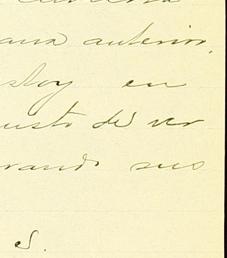 ana anterior,
stoy en
usto de ver
rando sus
S.